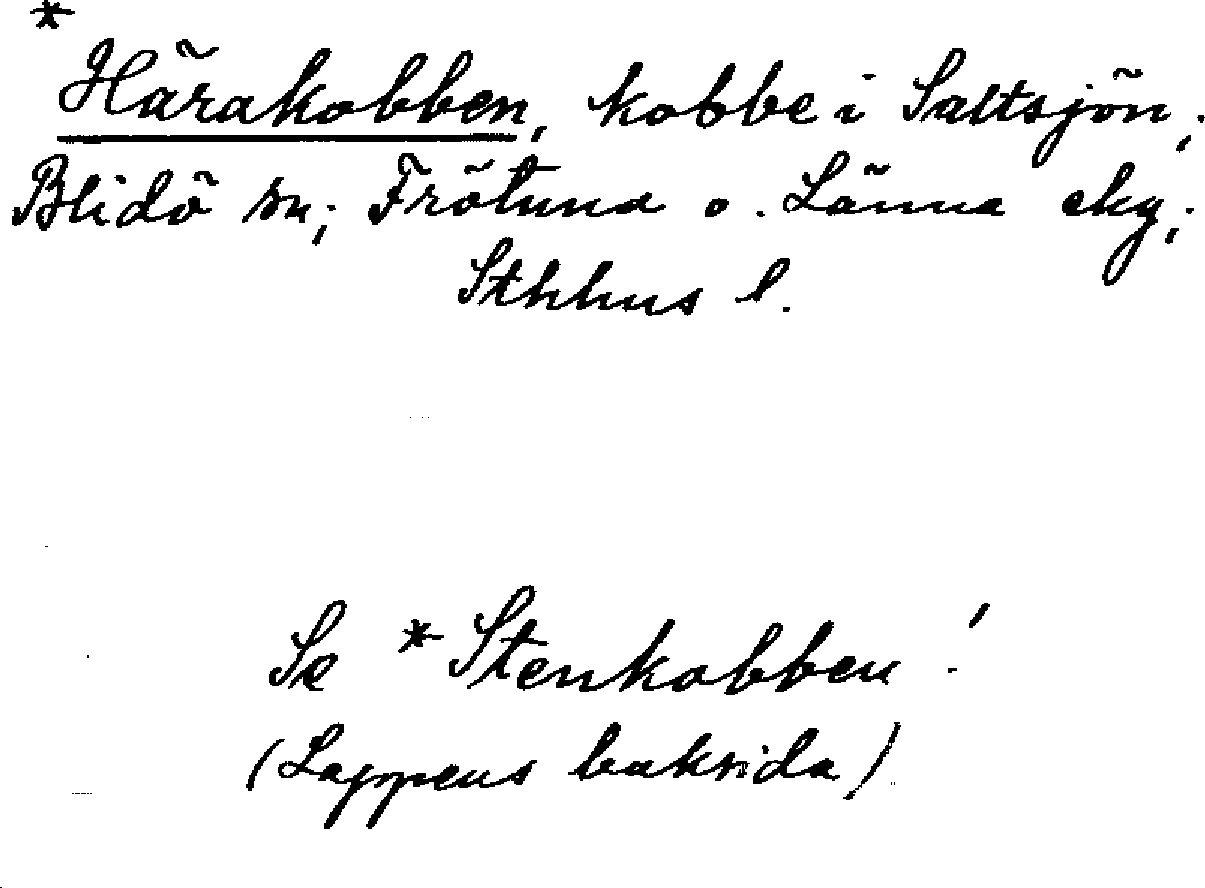 *
Härakobben, kobbe i Saltsjön;
Blidö sn; Frötuna o. Länna skg;
Sthlms l.
Se *Stenkobben!
(Lappens baksida)